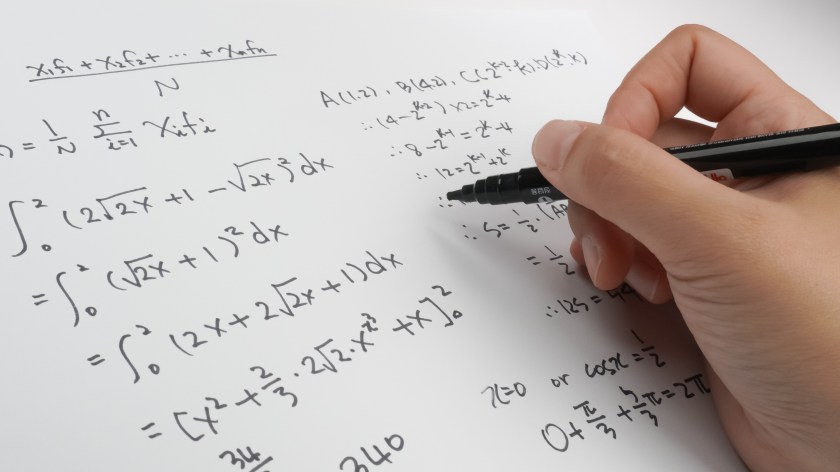 x₁f₁ + x₂f₂ + ⋯ + xₙfₙ
N
= 1/N Σ_{i=1}^{n} xᵢfᵢ
∫₀² (2√2x + 1 − √2x)² dx
= ∫₀² (√2x + 1)² dx
= ∫₀² (2x + 2√2x + 1) dx
= [x² + 2/3 · 2√2 · x^{3/2} + x]₀²
34
340
A(1,2), B(4,2),
∴ 8 − 2^{k-1} = 2^k − 4
∴ 12 = 2^{k-1} + 2^k
∴
∴ S = 1/2 ·
= 1/2
∴ 12S =
x=0 or cosx = 1/2
0 + π/3 + 5/3 π = 2π